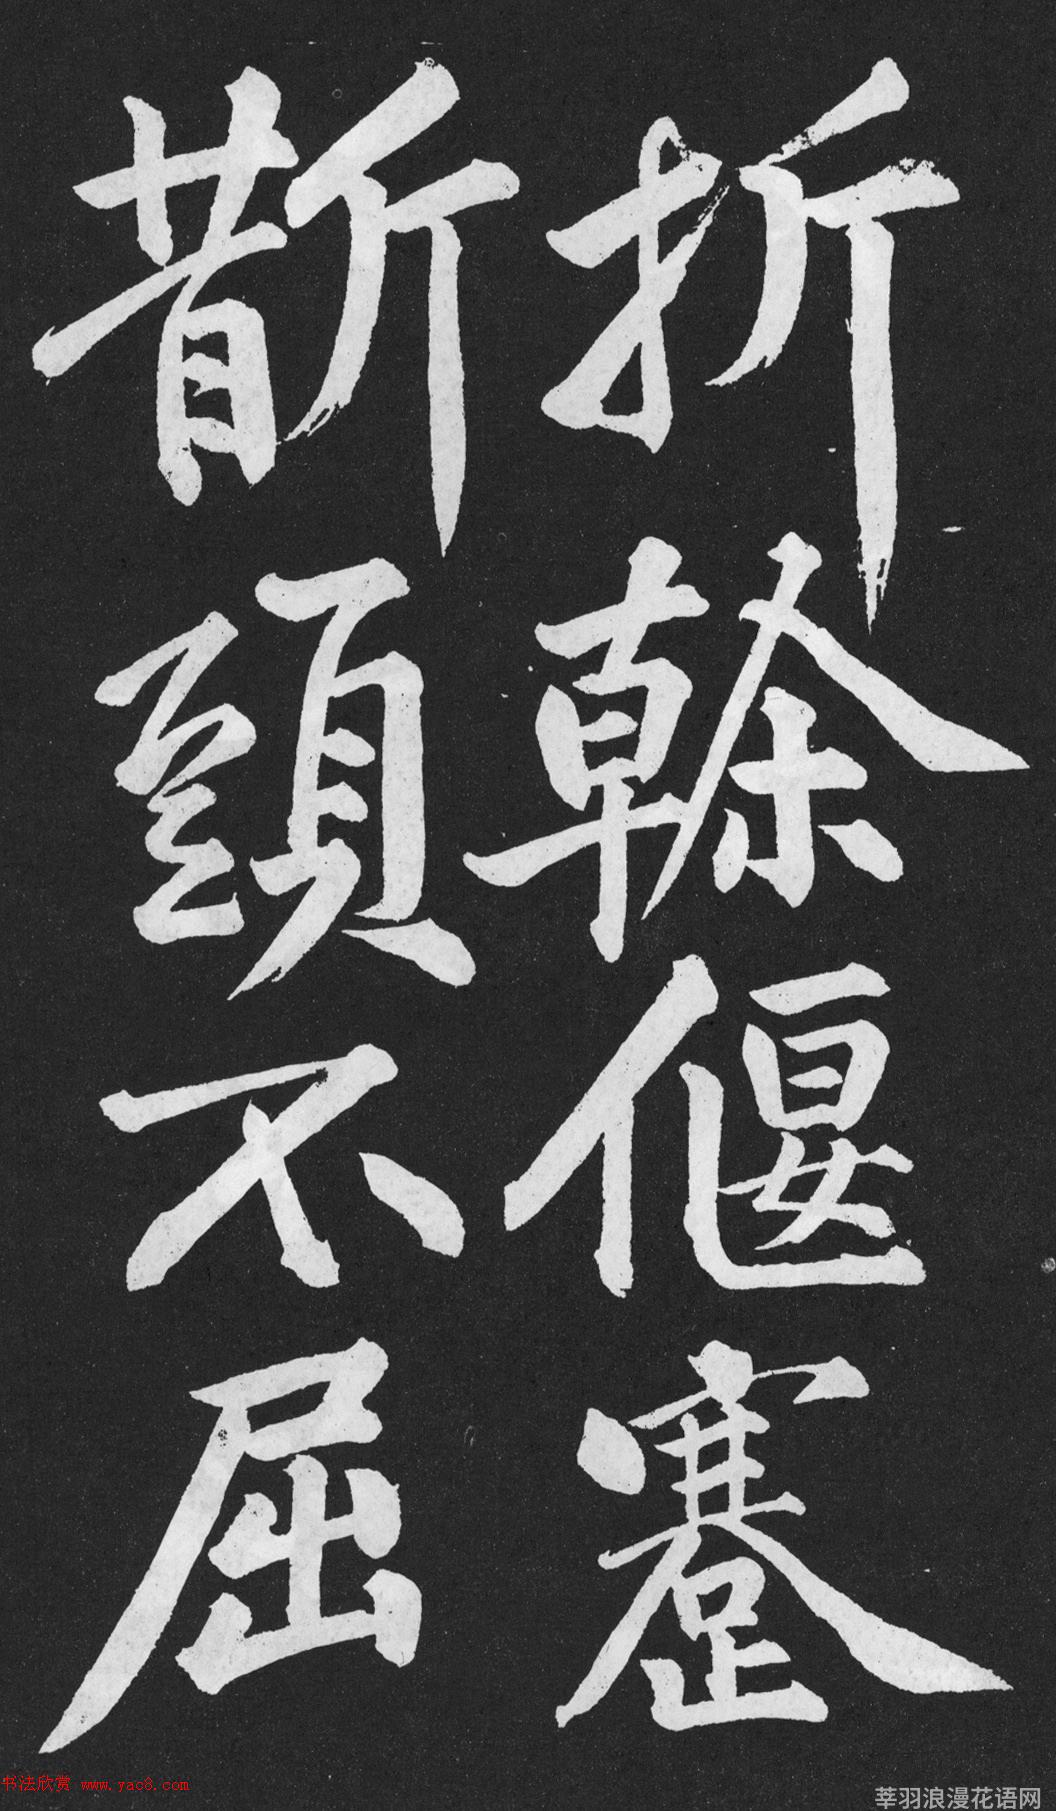 折榦偃蹇
斮頭不屈
书法欣赏 www.yac8.com
莘羽浪漫花语网